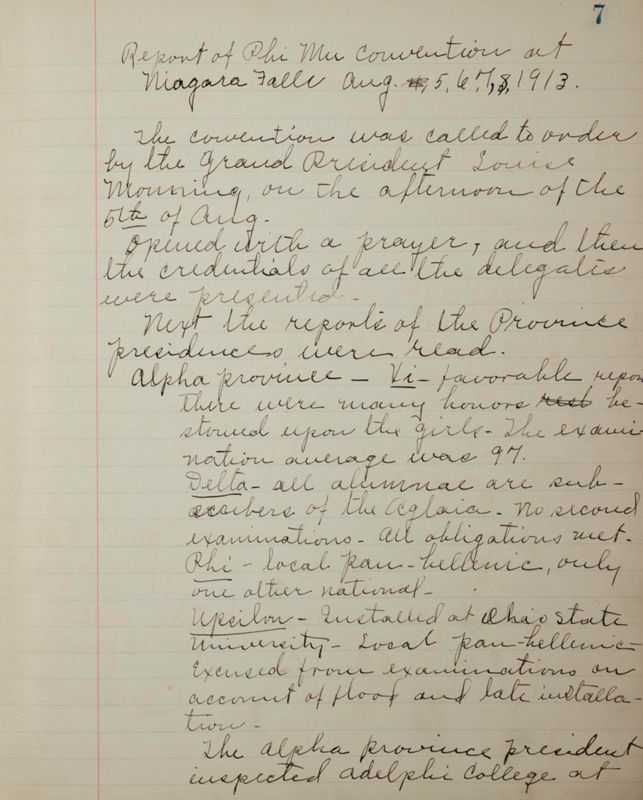 7
Report of Phi Mu Convention at
Niagara Falls Aug. 5, 6, 7, 8, 1913.
The convention was called to order
by the Grand President Louise
Monning, on the afternoon of the
5th of Aug.
Opened with a prayer, and then
the credentials of all the delegates
were presented.
Next the reports of the Province
presidences were read.
Alpha province - Xi - favorable repor
there were many honors rest be-
stowed upon the girls - The exami-
nation average was 97.
Delta - all alumnae are sub-
scribers of the Aglaia - No second
examinations - All obligations met.
Phi - local pan-hellenic, only
one other national -
Upsilon - Installed at Ohio State
University - Local pan-hellenic -
Excused from examinations on
account of flood and late installa-
tion -
The Alpha province president
inspected Adelphi College at